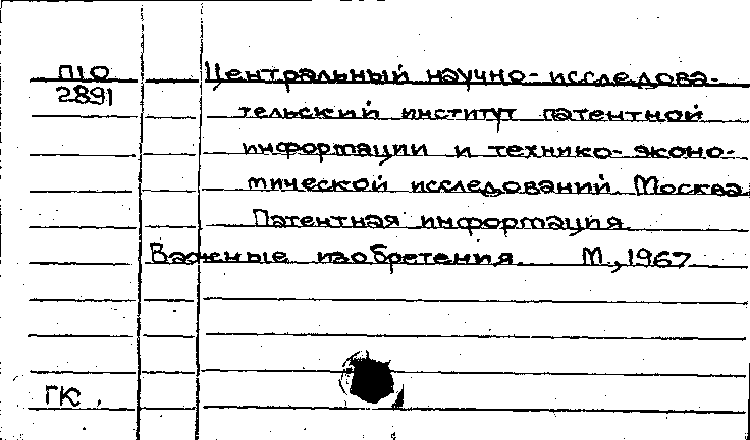 П10 Центральный научно-исследова-
2891
тельский институт патентной
информации и технико-эконо-
мической исследований. Москва.
Патентная информация.
Важные изобретения. М., 1967
ГК.